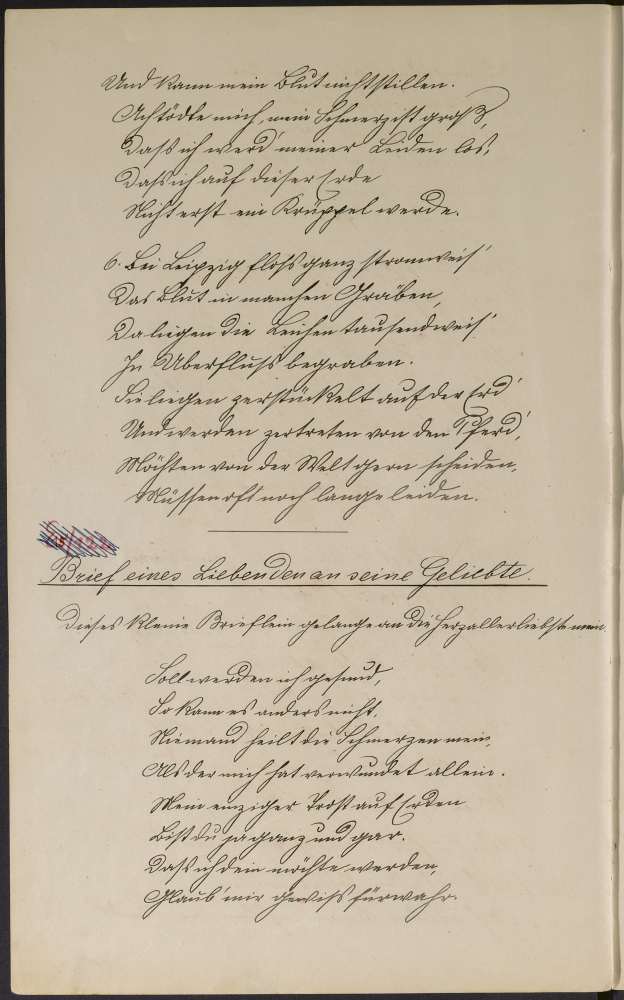 Und kann mein Blut nicht stillen.
Ach tödte mich, mein Schmerz ist groß,
Dass ich werd' meiner Leiden los,
Dass ich auf dieser Erde
Nicht erst ein Krüppel werde.
6. Bei Leipzig floss ganz stromweis'
Das Blut in manchen Gräben,
Da liegen die Leichen tausendweis'
In Überfluss begraben.
Sie liegen zerstückelt auf der Erd'
Und werden zertreten von den Pferd',
Möchten von der Welt gern scheiden,
Müssen oft noch lange leiden.
Brief eines Liebenden an seine Geliebte.
Dieses kleine Brieflein gelange an die Herzallerliebste mein.
Soll werden ich gesund,
So kann es anders nicht,
Niemand heilt die Schmerzen mein,
Als der mich hat verwundet allein.
Mein einziger Trost auf Erden
Bist du ja ganz und gar.
Dass ich dein möchte werden,
Glaub' mir gewiss fürwahr.